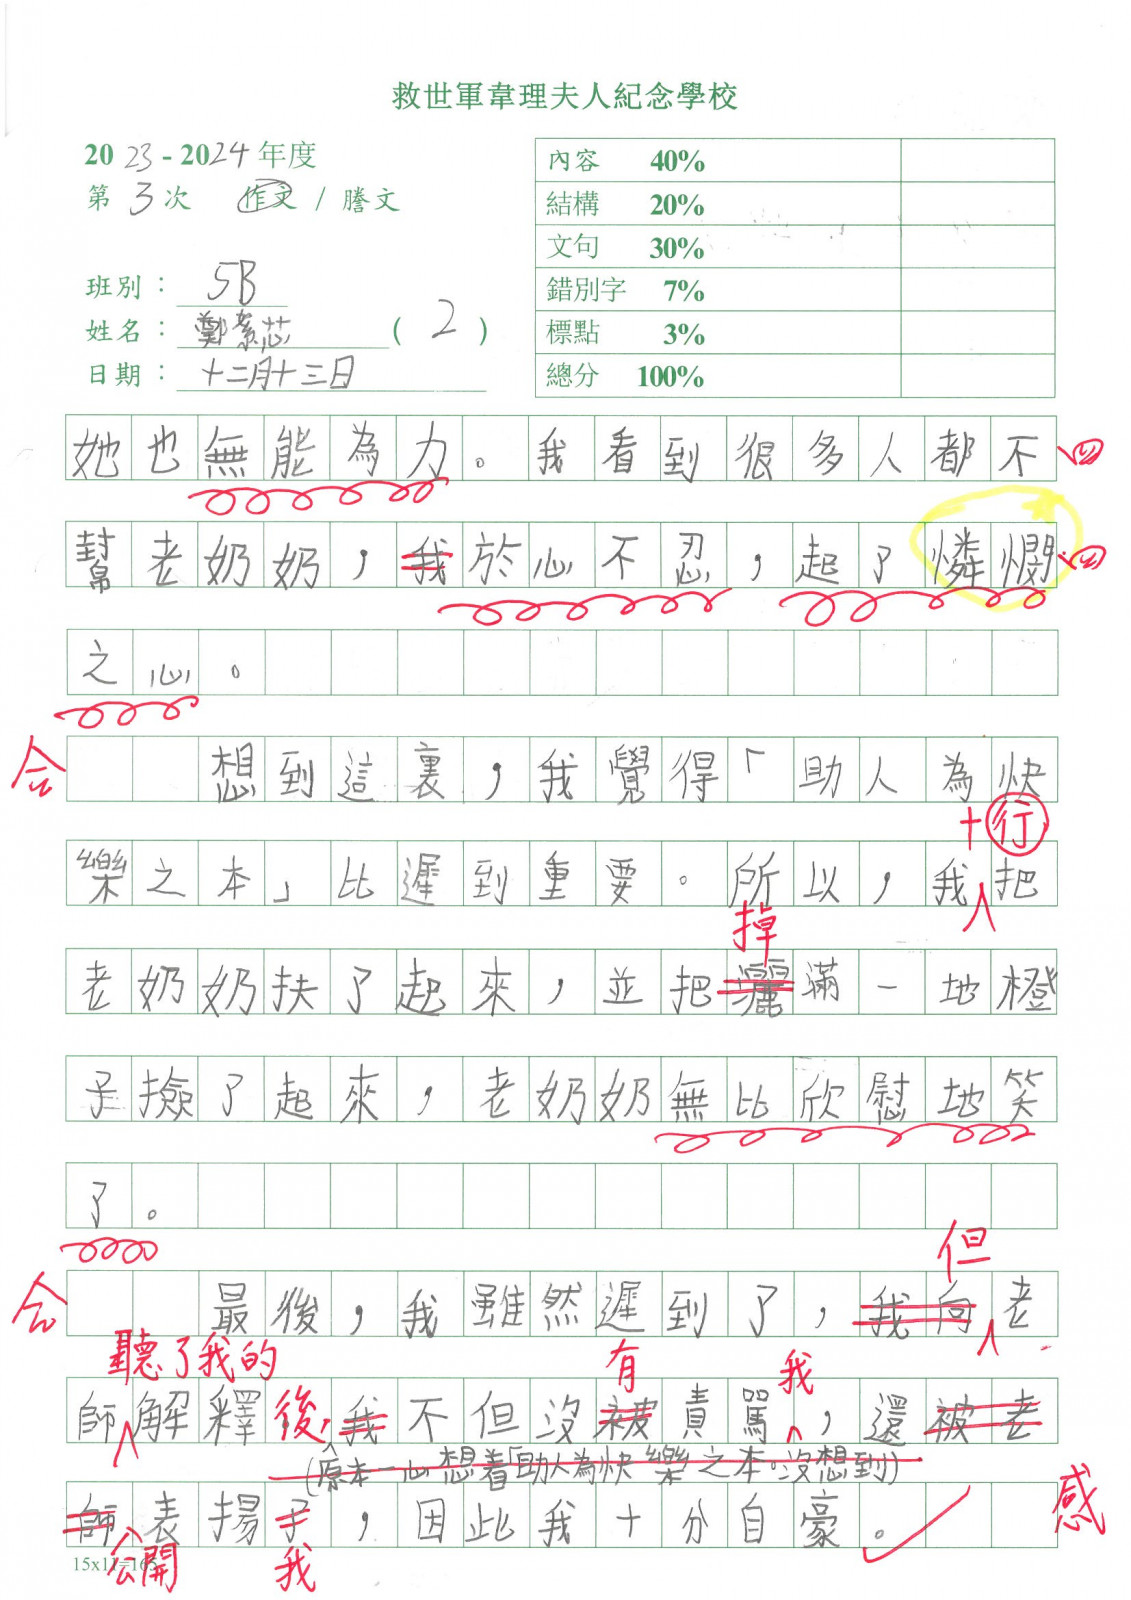 救世軍韋理夫人紀念學校
2023-2024年度
第3次 作文 / 謄文
班別：5B
姓名：鄭絮芯 (2)
日期：十二月十三日
內容 40%
結構 20%
文句 30%
錯別字 7%
標點 3%
總分 100%
她也無能為力。我看到很多人都不 四
幫老奶奶，我於心不忍，起了憐憫 四
之心。
合 想到這裏，我覺得「助人為快
+行
樂之本」比遲到重要。所以，我把
掉
老奶奶扶了起來，並把灑滿一地橙
子撿了起來，老奶奶無比欣慰地笑
了。
但
合 最後，我雖然遲到了，我向老
聽了我的 有 我
師解釋後，我不但沒被責罵，還被老
(原本一心想着「助人為快樂之本。沒想到)
師表揚子，因此我十分自豪。 感
15x11=165
公開 我